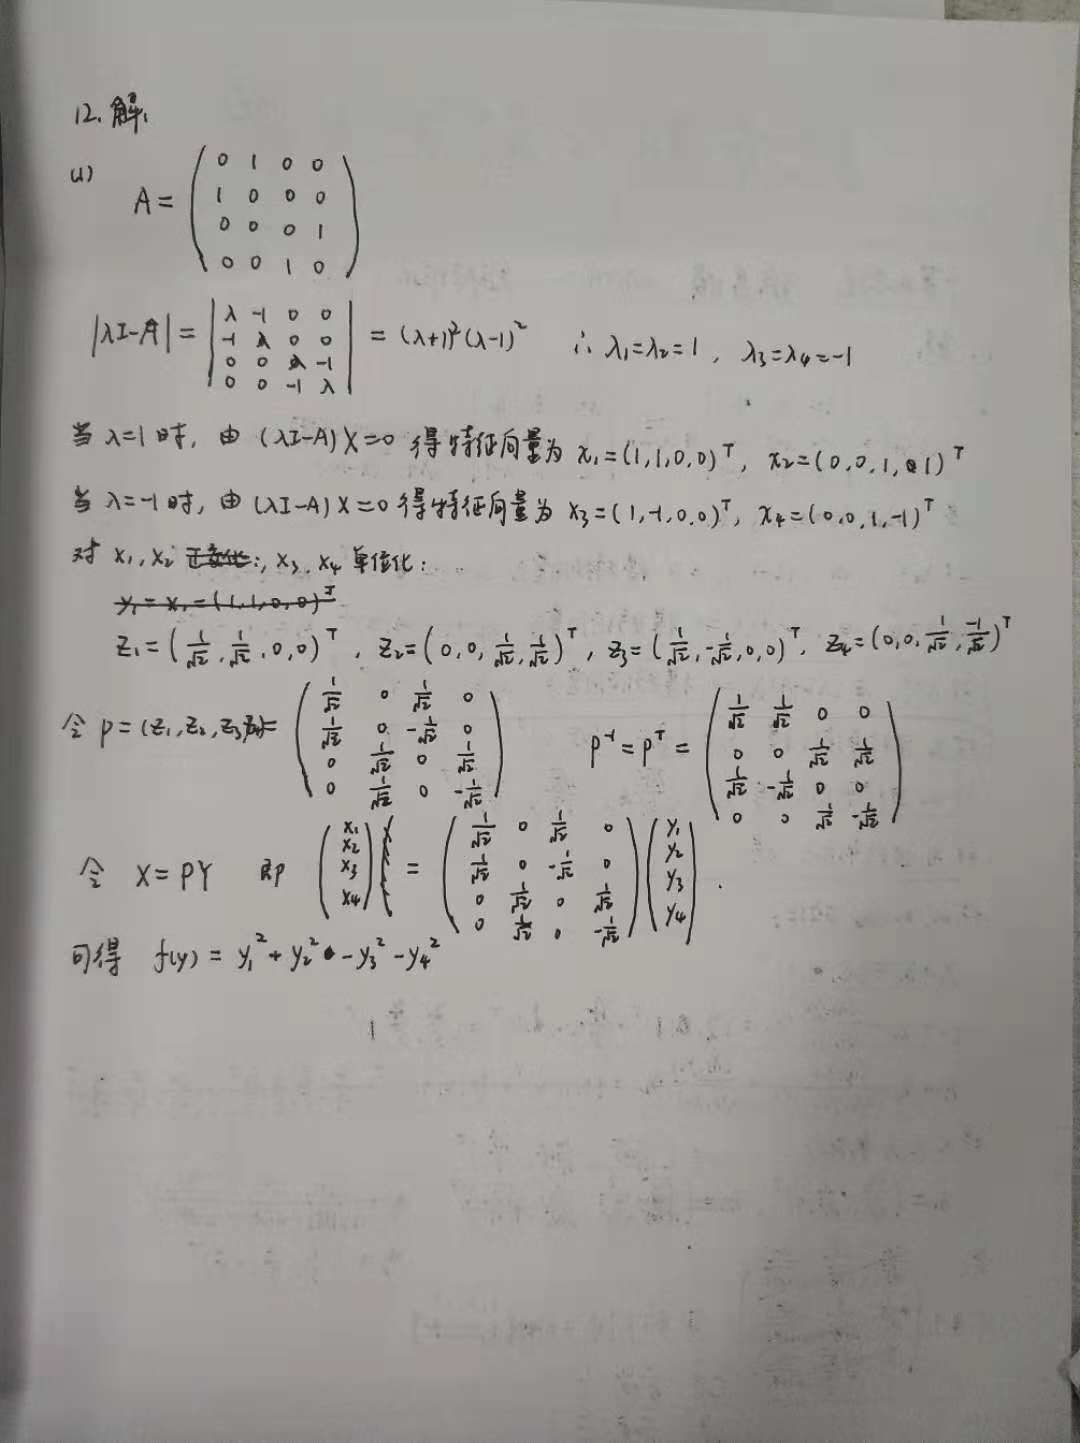 12. 解:
(1)
A = ( 0 1 0 0
1 0 0 0
0 0 0 1
0 0 1 0 )
|λI-A| = | λ -1 0 0
-1 λ 0 0
0 0 λ -1
0 0 -1 λ | = (λ+1)²(λ-1)² ∴ λ₁=λ₂=1, λ₃=λ₄=-1
当 λ=1 时, 由 (λI-A)X=0 得特征向量为 x₁=(1,1,0,0)ᵀ, x₂=(0,0,1,1)ᵀ
当 λ=-1 时, 由 (λI-A)X=0 得特征向量为 x₃=(1,-1,0,0)ᵀ, x₄=(0,0,1,-1)ᵀ
对 x₁, x₂ 正交化:, x₃, x₄ 单位化:
y₁ = x₁ = (1,1,0,0)ᵀ
z₁ = (1/√2, 1/√2, 0, 0)ᵀ, z₂ = (0, 0, 1/√2, 1/√2)ᵀ, z₃ = (1/√2, -1/√2, 0, 0)ᵀ, z₄ = (0, 0, 1/√2, -1/√2)ᵀ
令 P = (z₁, z₂, z₃, z₄) = ( 1/√2 0 1/√2 0
1/√2 0 -1/√2 0
0 1/√2 0 1/√2
0 1/√2 0 -1/√2 )
P⁻¹ = Pᵀ = ( 1/√2 1/√2 0 0
0 0 1/√2 1/√2
1/√2 -1/√2 0 0
0 0 1/√2 -1/√2 )
令 X = PY 即 ( x₁
x₂
x₃
x₄ ) = ( 1/√2 0 1/√2 0
1/√2 0 -1/√2 0
0 1/√2 0 1/√2
0 1/√2 0 -1/√2 ) ( y₁
y₂
y₃
y₄ ).
可得 f(y) = y₁² + y₂² - y₃² - y₄²